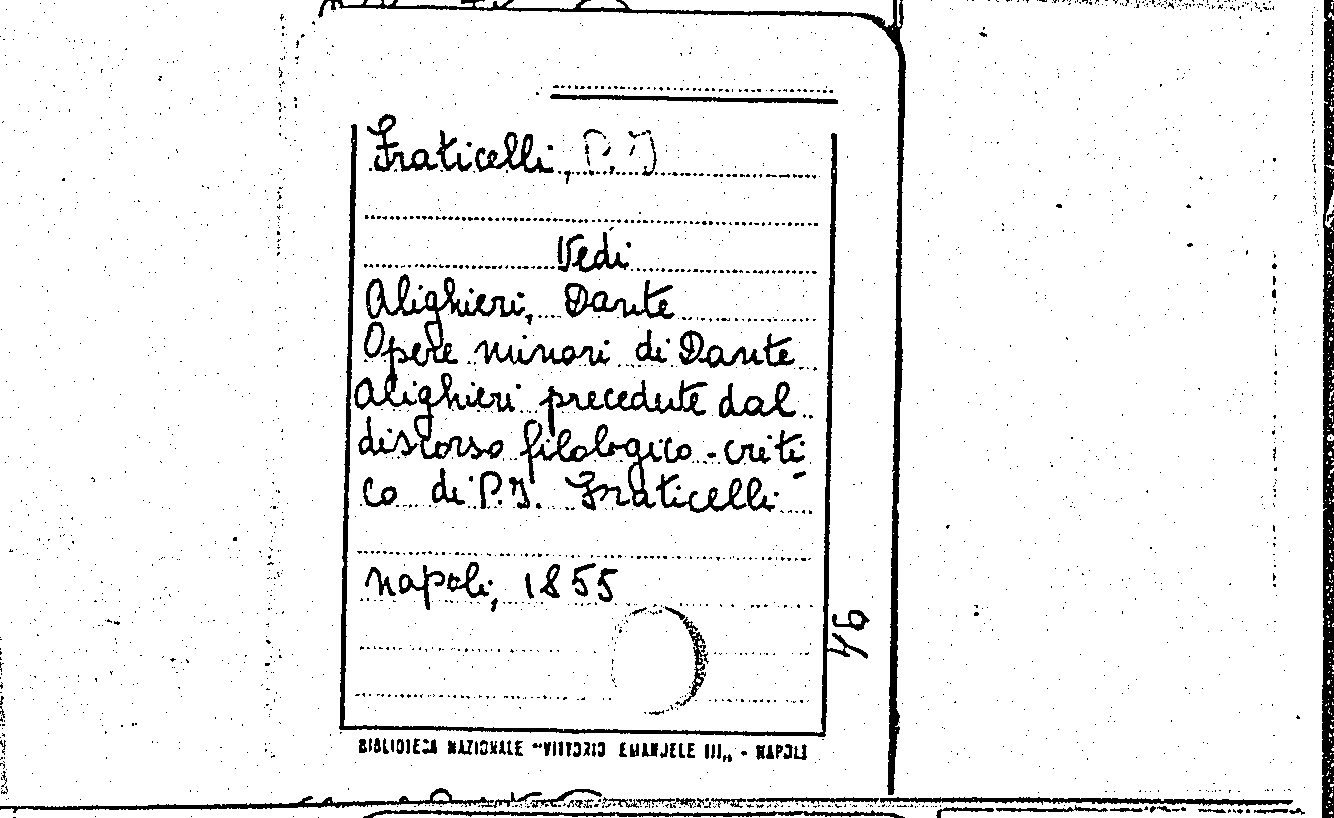 Fraticelli, P. I
Vedi
Alighieri, Dante
Opere minori di Dante
Alighieri precedute dal
discorso filologico-criti
co di P. I. Fraticelli
Napoli, 1855
BIBLIOTECA NAZIONALE "VITTORIO EMANUELE III„ - NAPOLI